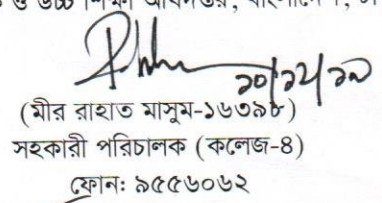 ও উচ্চ শিক্ষা অধিদপ্তর, বাংলাদেশ,
২০/১২/১৯
(মীর রাহাত মাসুম-১৬৩৯৮)
সহকারী পরিচালক (কলেজ-৪)
ফোনঃ ৯৫৫৬০৬২